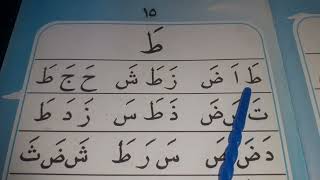 ١٥
طَ
طَ اَ ضَ زَ طَ شَ حَ جَ طَ
تَ ضَ ذَ طَ سَ زَ دَ طَ
دَ ضَ سَ رَ طَ شَ ضَ ثَ